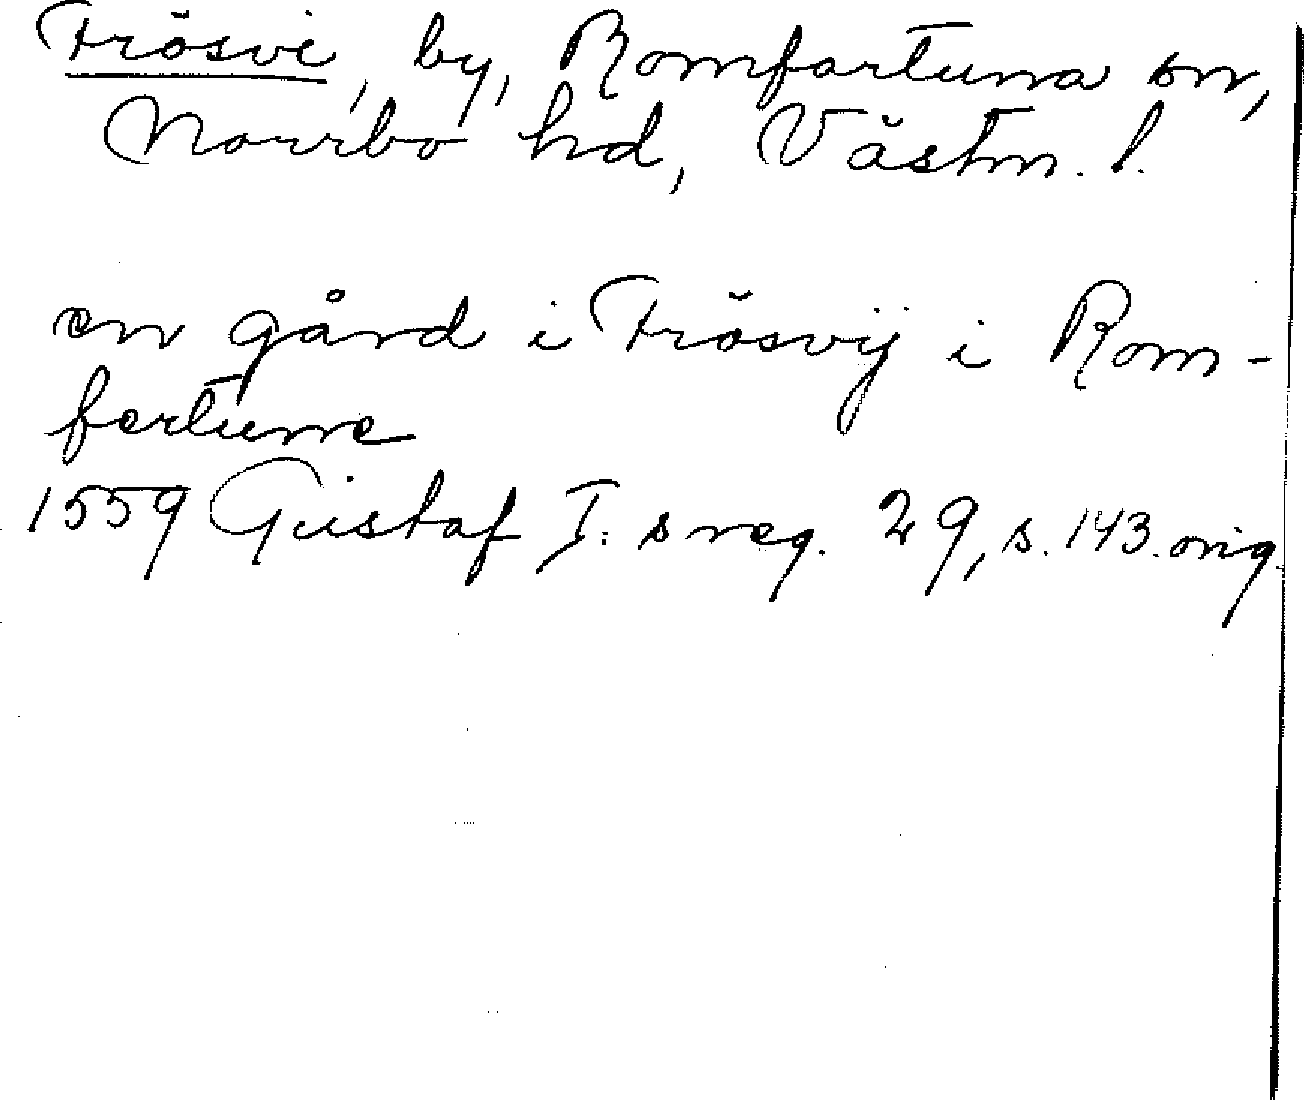 Frösvi, by, Romfartuna sn,
Norrbo hd, Västm. l.
en gård i Frösvij i Rom-
fertune
1559 Gustaf I: s reg. 29, s. 143. orig.